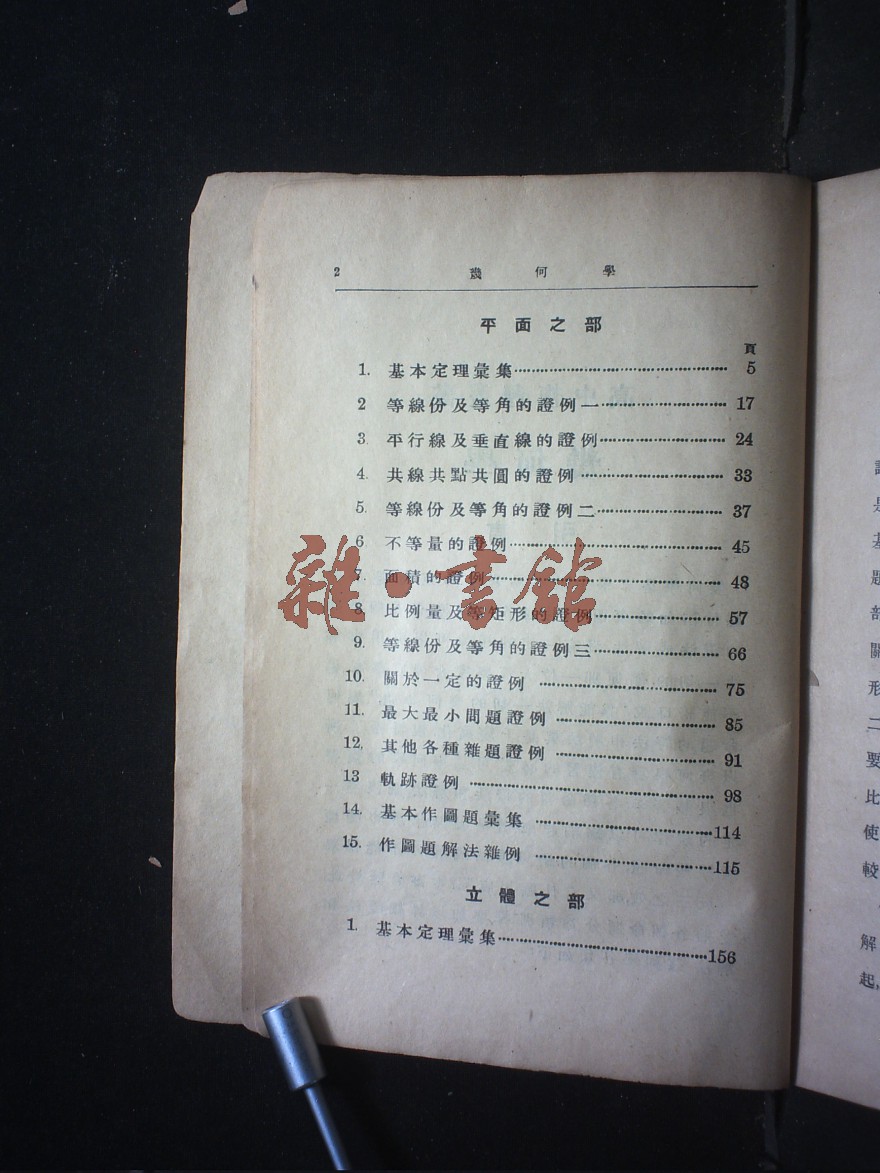 2 幾何學
平面之部
頁
1. 基本定理彙集 5
2 等線份及等角的證例一 17
3. 平行線及垂直線的證例 24
4. 共線共點共圓的證例 33
5. 等線份及等角的證例二 37
6 不等量的證例 45
7. 面積的證例 48
8. 比例量及等矩形的證例 57
9. 等線份及等角的證例三 66
10. 關於一定的證例 75
11. 最大最小問題證例 85
12. 其他各種雜題證例 91
13 軌跡證例 98
14. 基本作圖題彙集 114
15. 作圖題解法雜例 115
立體之部
1. 基本定理彙集 156
雜·書館
是
基
題
部
關
形
二
要
比
使
較
解
起,